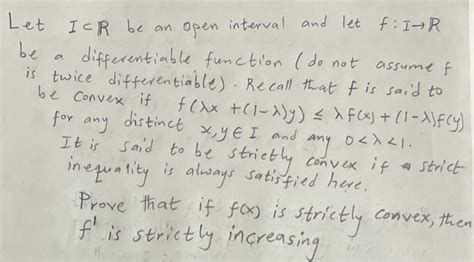 Let I⊂ℝ be an open interval and let f: I→ℝ
be a differentiable function (do not assume f
is twice differentiable). Recall that f is said to
be convex if f(λx + (1-λ)y) ≤ λf(x) + (1-λ)f(y)
for any distinct x,y∈I and any 0<λ<1.
It is said to be strictly convex if strict
inequality is always satisfied here.
Prove that if f(x) is strictly convex, then
f' is strictly increasing